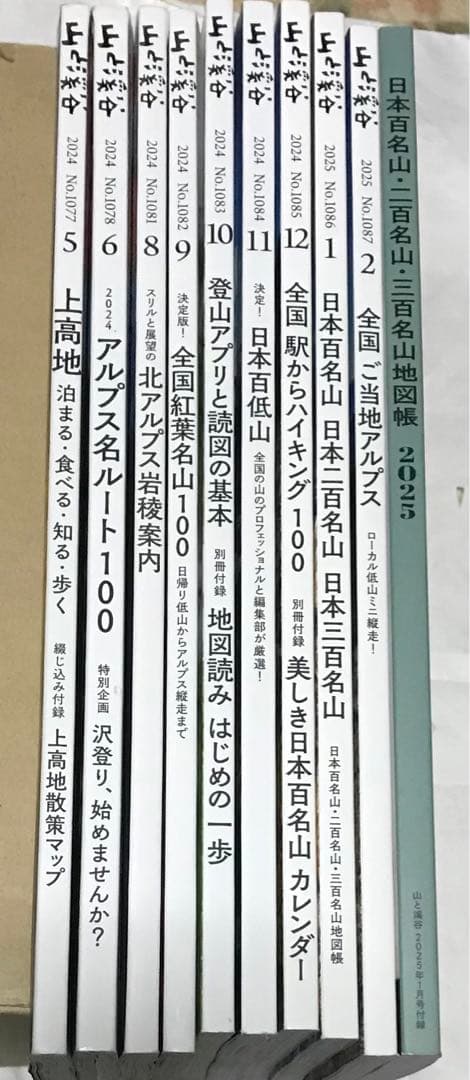 山と溪谷
2024 No.1077 5
上高地 泊まる・食べる・知る・歩く 綴じ込み付録 上高地散策マップ
山と溪谷
2024 No.1078 6
2024 アルプス名ルート100 特別企画 沢登り、始めませんか?
山と溪谷
2024 No.1081 8
スリルと展望の 北アルプス岩稜案内
山と溪谷
2024 No.1082 9
決定版! 全国紅葉名山100 日帰り低山からアルプス縦走まで
山と溪谷
2024 No.1083 10
登山アプリと読図の基本 別冊付録 地図読み はじめの一歩
山と溪谷
2024 No.1084 11
決定! 日本百低山 全国の山のプロフェッショナルと編集部が厳選!
山と溪谷
2024 No.1085 12
全国 駅からハイキング100 別冊付録 美しき日本百名山 カレンダー
山と溪谷
2025 No.1086 1
日本百名山 日本二百名山 日本三百名山 日本百名山・二百名山・三百名山地図帳
山と溪谷
2025 No.1087 2
全国 ご当地アルプス ローカル低山ミニ縦走!
日本百名山・二百名山・三百名山地図帳 2025
山と溪谷 2025年1月号付録